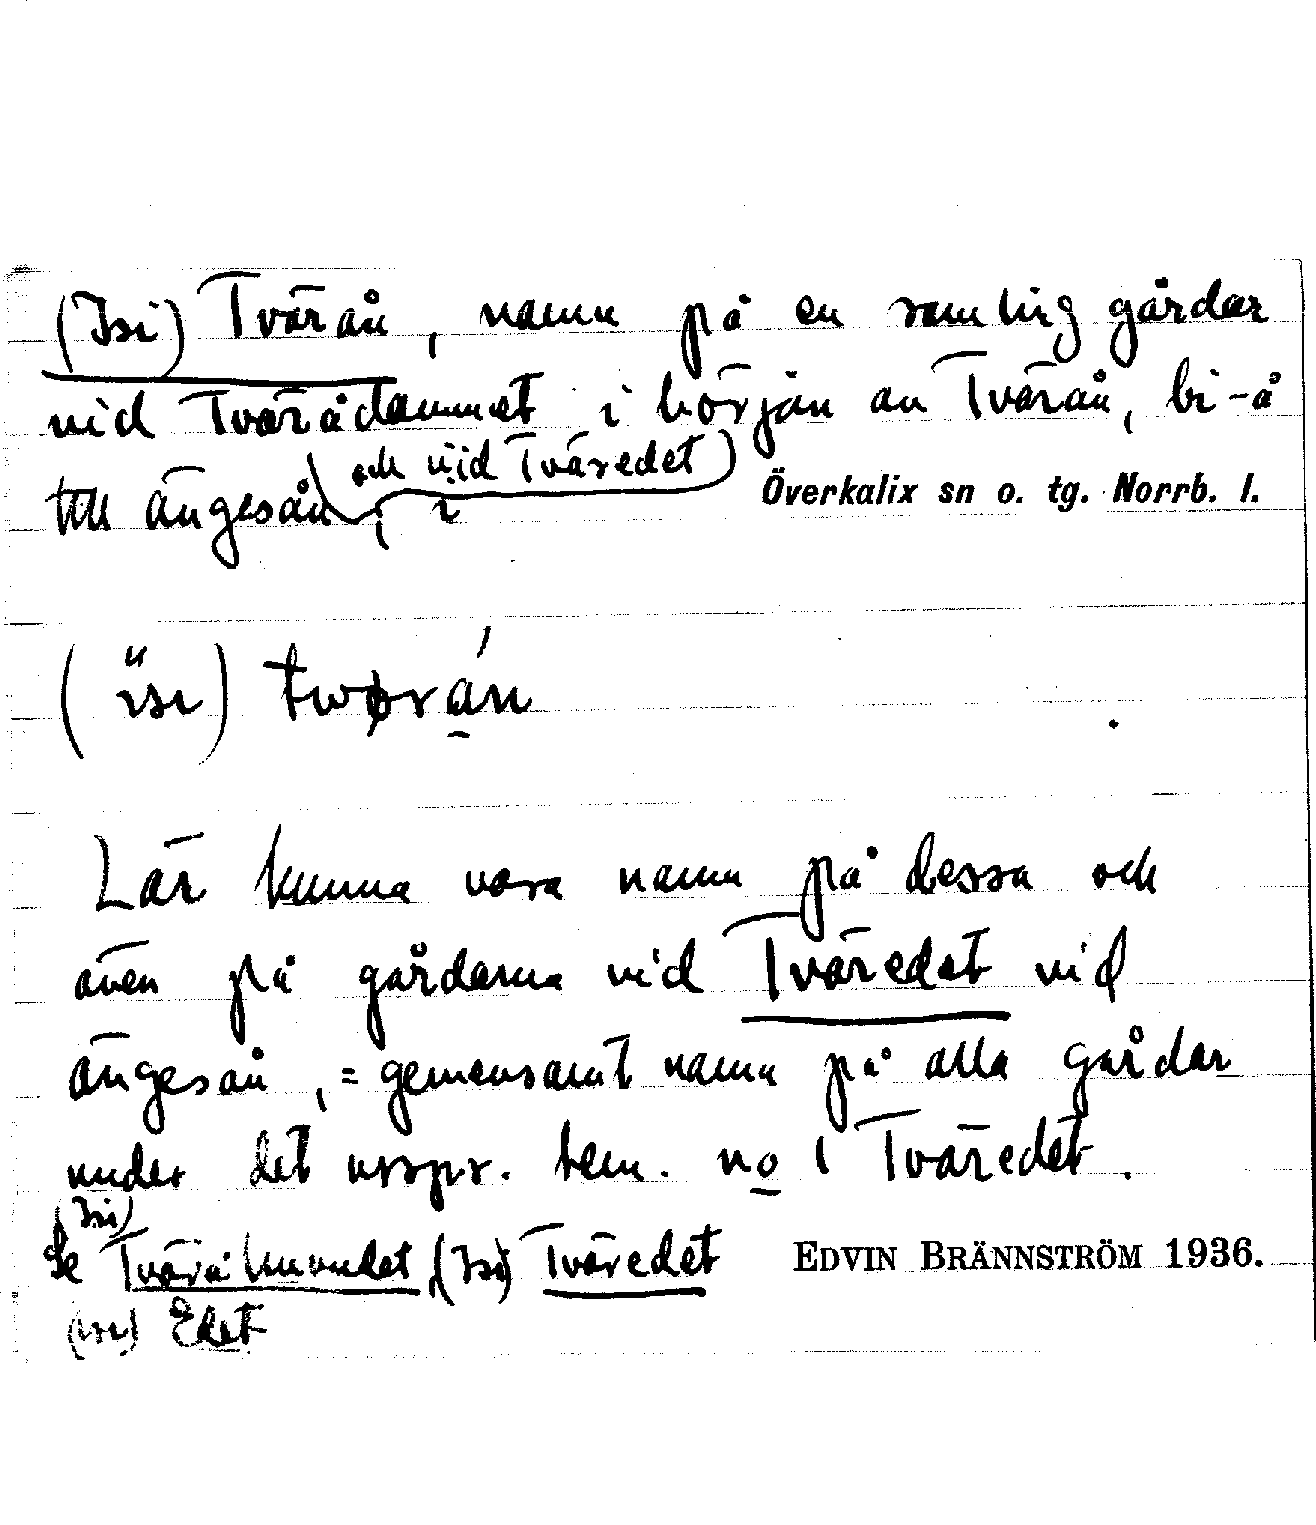 (Isi) Tvärån, namn på en samling gårdar
vid Tvärådammet i början av Tvärån, bi-å
till ängesån och vid Tväredet, i Överkalix sn o. tg. Norrb. l.
(ïsi) twørán
Lär kunna vara namn på dessa och
även på gårdarna vid Tväredet vid
ängesån, = gemensamt namn på alla gårdar
under det urspr. hem. no 1 Tväredet.
Se (Isi) Tvärå (Isi) Tväredet EDVIN BRÄNNSTRÖM 1936.
(Isi) Edet